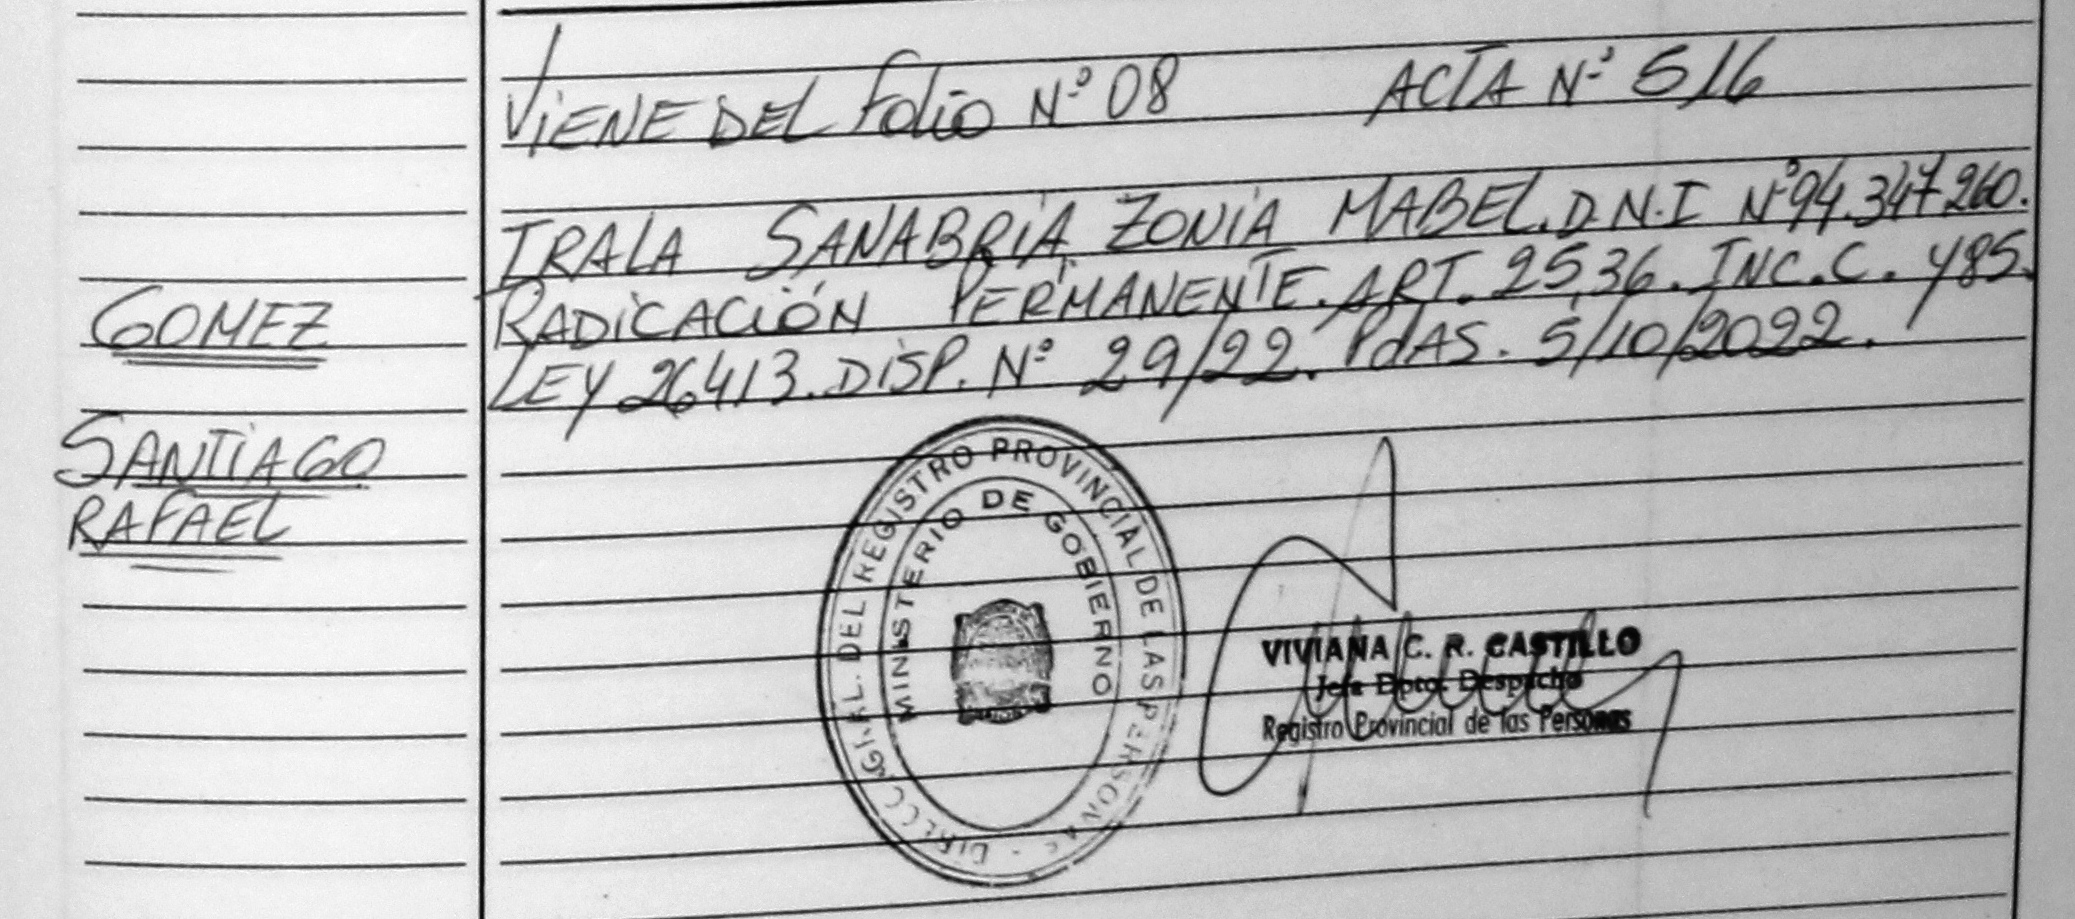 VIENE DEL Folio Nº 08 ACTA Nº 516
IRALA SANABRIA, ZONIA MABEL. D.N.I Nº 94.347.260.
RADICACIÓN PERMANENTE. ART. 25,36. INC. C. Y 85.
LEY 26413. DISP. Nº 29/22. PdAS. 5/10/2022.
GOMEZ
SANTIAGO
RAFAEL
DIRECC. GRAL. DEL REGISTRO PROVINCIAL DE LAS PERSONAS
MINISTERIO DE GOBIERNO
VIVIANA C. R. CASTILLO
Jefa Dpto. Despacho
Registro Provincial de las Personas